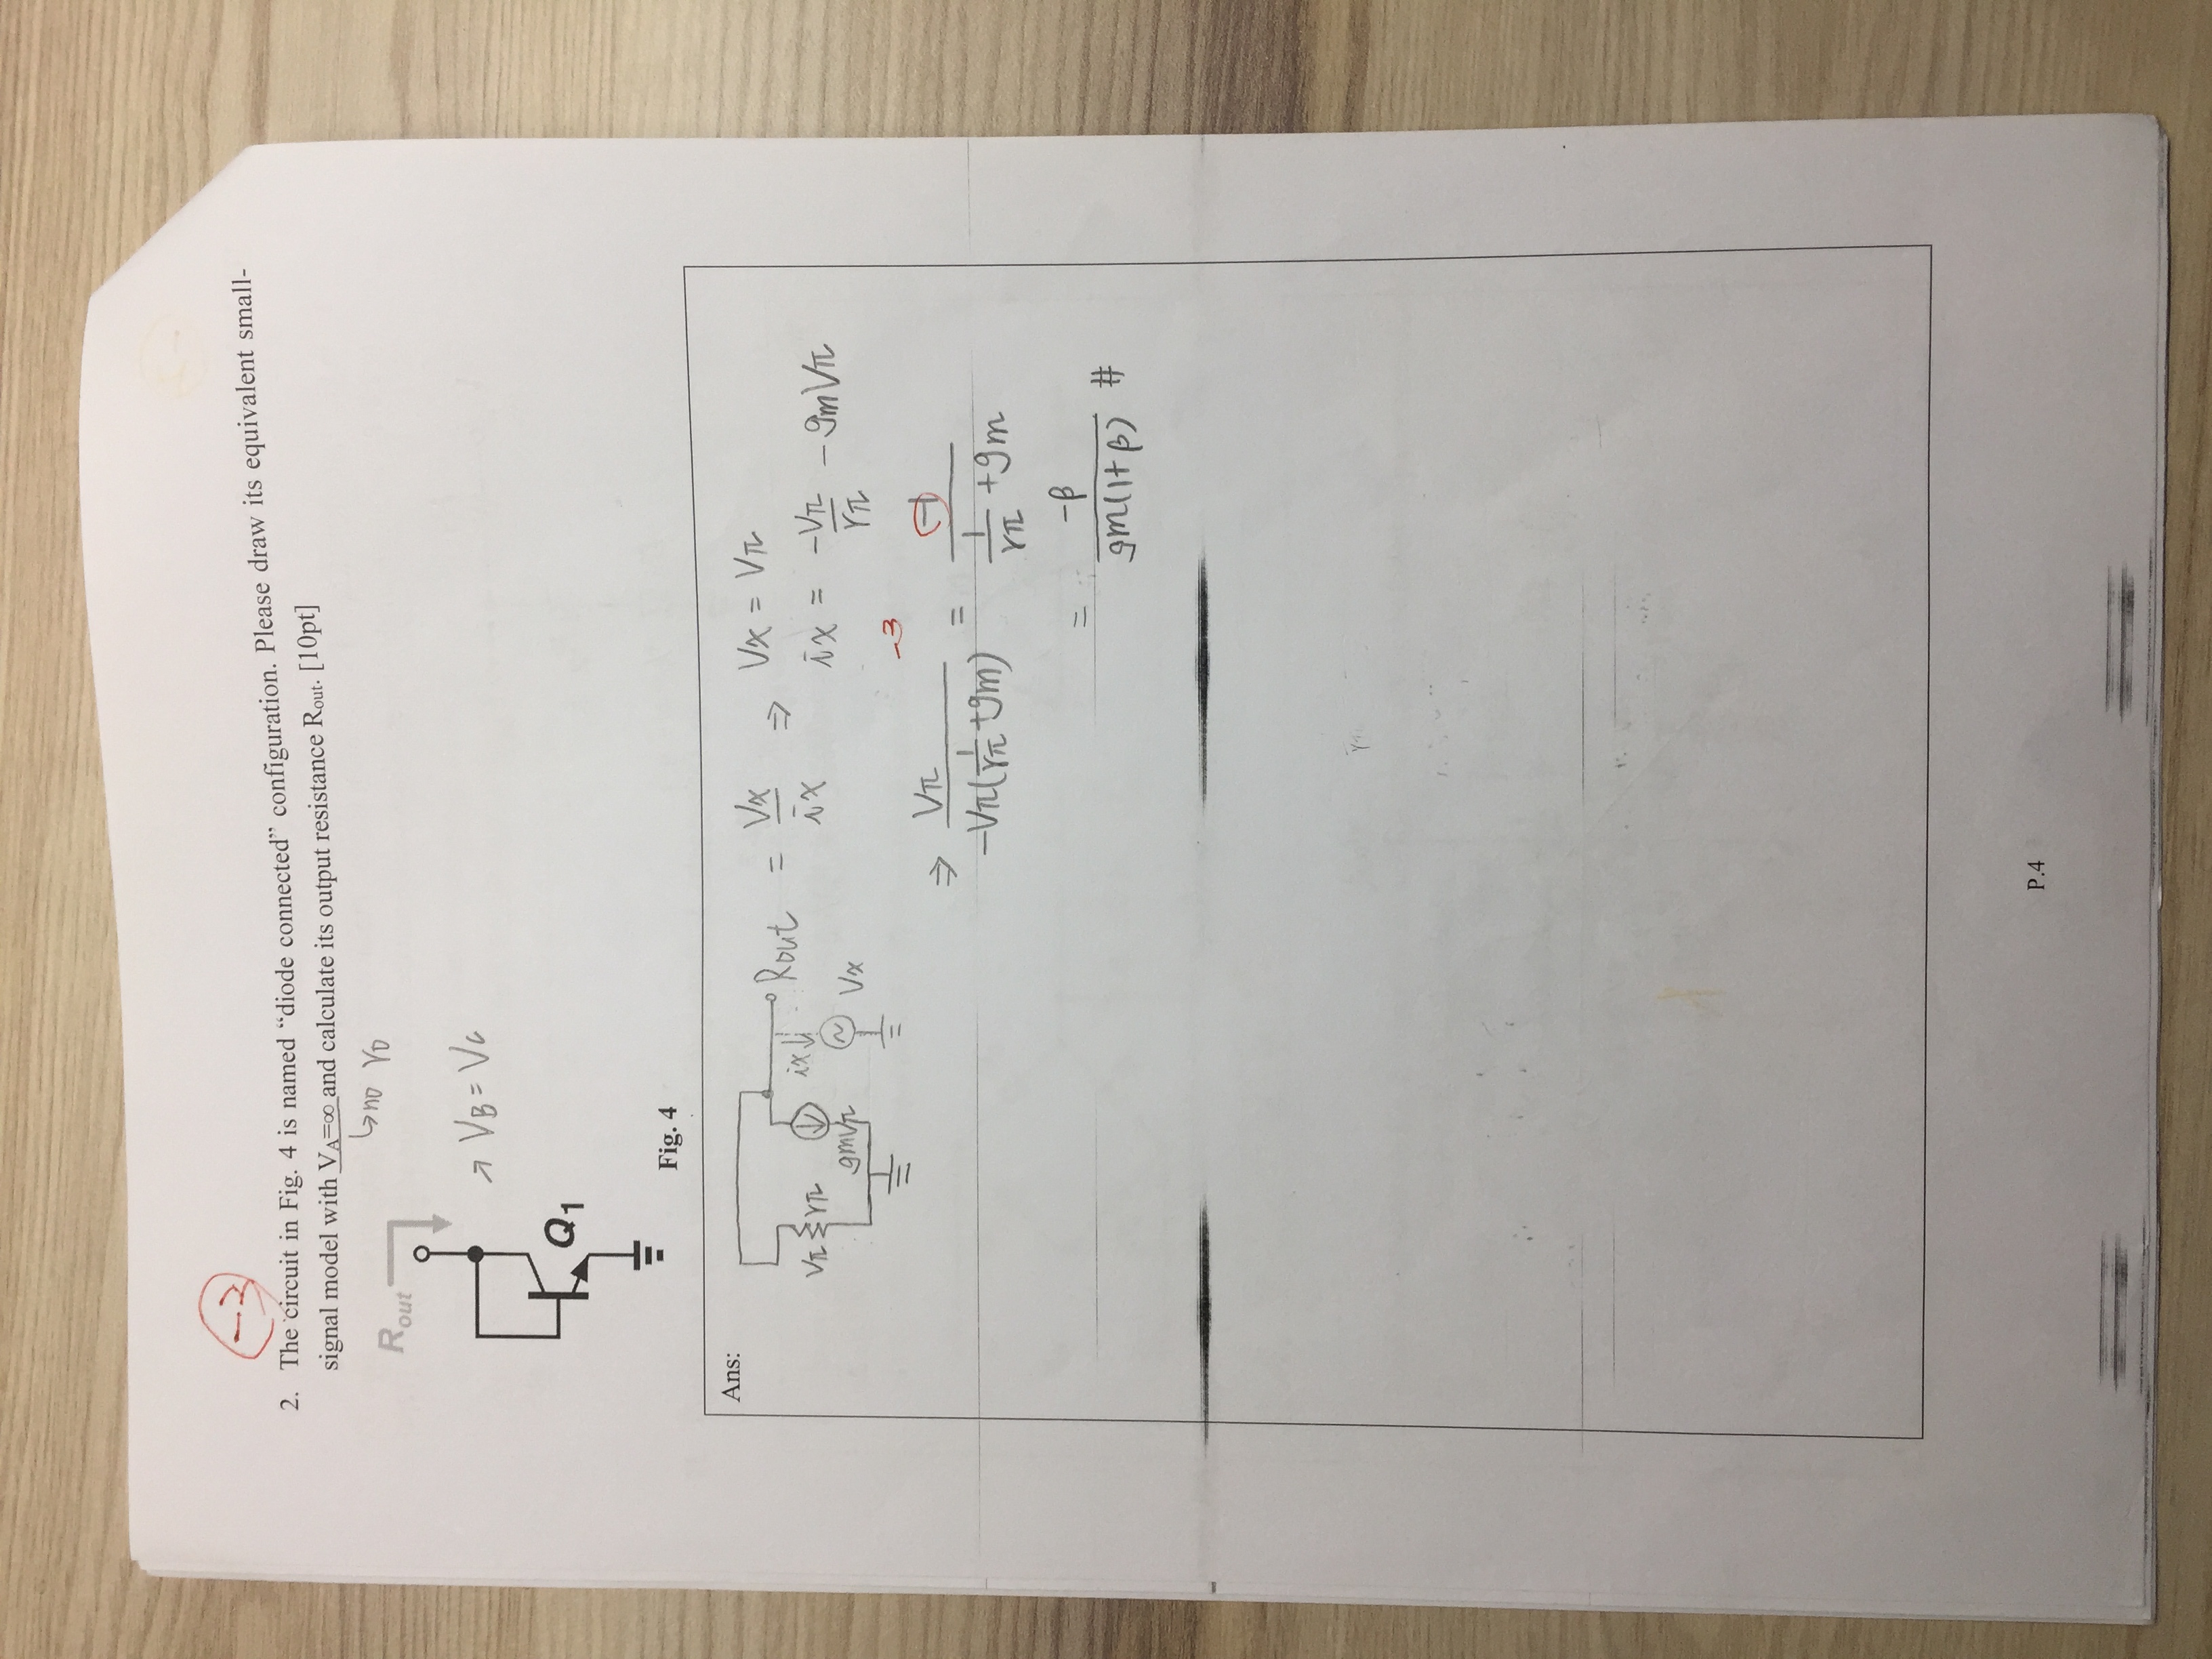 -3
2. The circuit in Fig. 4 is named “diode connected” configuration. Please draw its equivalent small-
signal model with VA=∞ and calculate its output resistance Rout. [10pt]
↳no ro
Rout
↗ VB = VC
Q1
Fig. 4
Ans:
Vπ rπ gmVπ ix↓ Vx
Rout = Vx/ix ⇒ Vx = Vπ
ix = -Vπ/rπ - gmVπ
-3
⇒ Vπ/-Vπ(1/rπ+gm) = -1/(1/rπ +gm)
= -β/gm(1+β) #
P.4